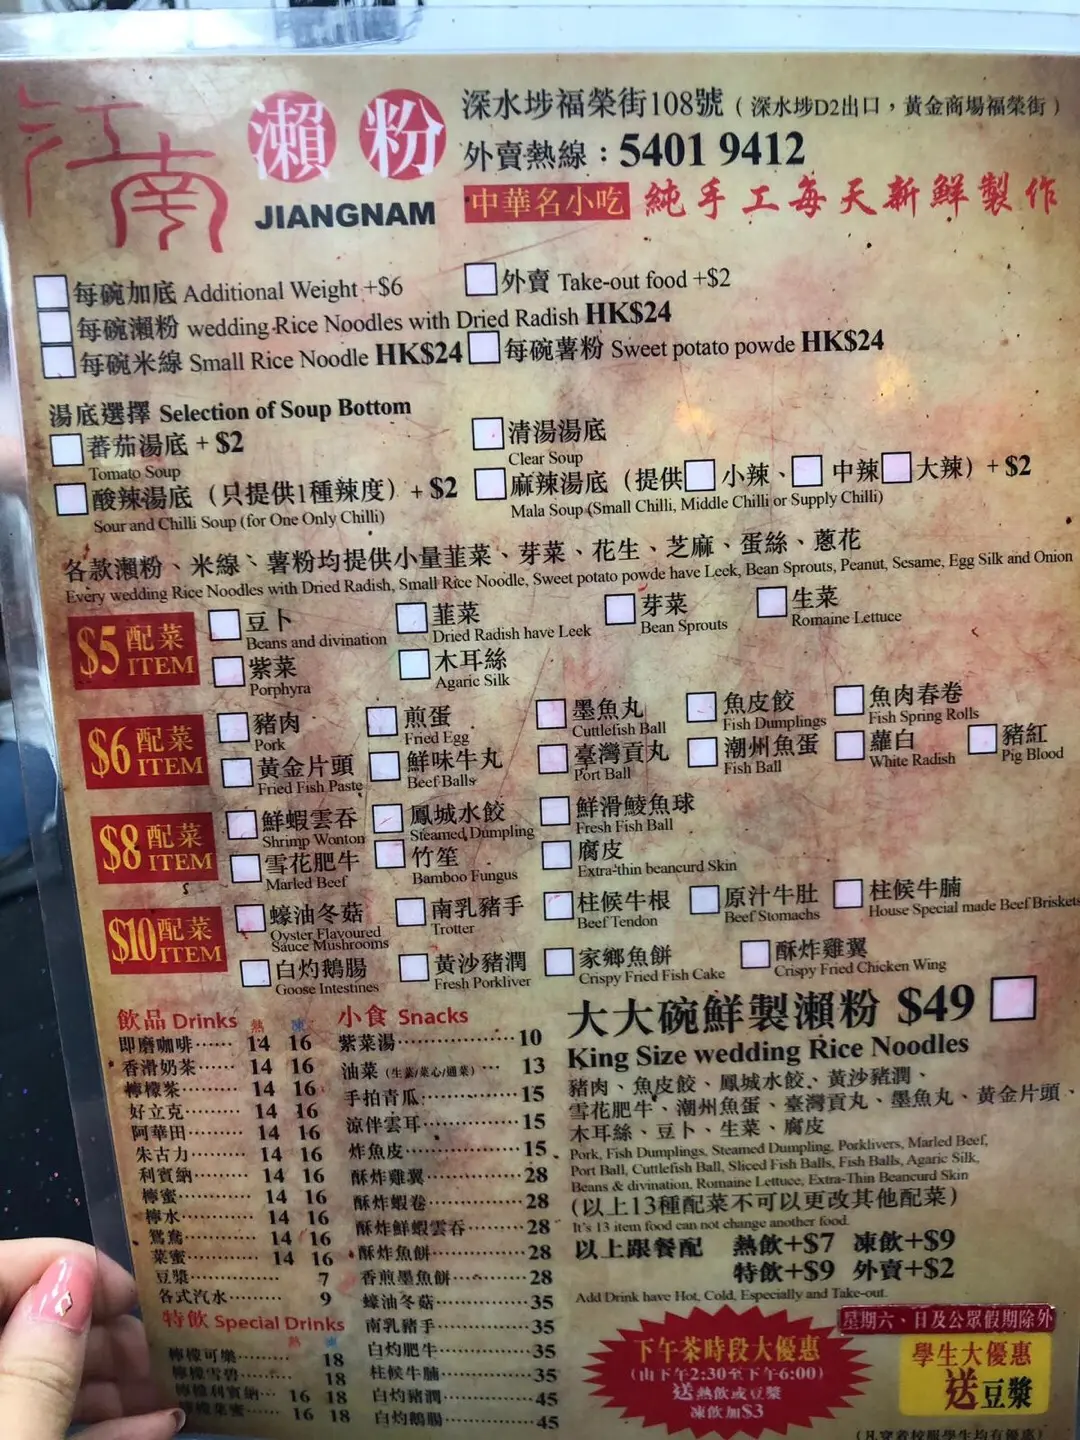 江南 瀨粉 JIANGNAM
深水埗福榮街108號（深水埗D2出口，黃金商場福榮街）
外賣熱線：5401 9412
中華名小吃 純手工每天新鮮製作
每碗加底 Additional Weight +$6 外賣 Take-out food +$2
每碗瀨粉 wedding Rice Noodles with Dried Radish HK$24
每碗米線 Small Rice Noodle HK$24 每碗薯粉 Sweet potato powde HK$24
湯底選擇 Selection of Soup Bottom
蕃茄湯底 + $2 清湯湯底
Tomato Soup Clear Soup
酸辣湯底（只提供1種辣度）+ $2 麻辣湯底（提供 小辣、 中辣 大辣）+ $2
Sour and Chilli Soup (for One Only Chilli) Mala Soup (Small Chilli, Middle Chilli or Supply Chilli)
各款瀨粉、米線、薯粉均提供小量韮菜、芽菜、花生、芝麻、蛋絲、蔥花
Every wedding Rice Noodles with Dried Radish, Small Rice Noodle, Sweet potato powde have Leek, Bean Sprouts, Peanut, Sesame, Egg Silk and Onion
$5 配菜 ITEM
豆卜 韮菜 芽菜 生菜
Beans and divination Dried Radish have Leek Bean Sprouts Romaine Lettuce
紫菜 木耳絲
Porphyra Agaric Silk
$6 配菜 ITEM
豬肉 煎蛋 墨魚丸 魚皮餃 魚肉春卷
Pork Fried Egg Cuttlefish Ball Fish Dumplings Fish Spring Rolls
黃金片頭 鮮味牛丸 臺灣貢丸 潮州魚蛋 蘿白 豬紅
Fried Fish Paste Beef Balls Port Ball Fish Ball White Radish Pig Blood
$8 配菜 ITEM
鮮蝦雲吞 鳳城水餃 鮮滑鯪魚球
Shrimp Wonton Steamed Dumpling Fresh Fish Ball
雪花肥牛 竹笙 腐皮
Marled Beef Bamboo Fungus Extra-thin beancurd Skin
$10 配菜 ITEM
蠔油冬菇 南乳豬手 柱候牛根 原汁牛肚 柱候牛腩
Oyster Flavoured Sauce Mushrooms Trotter Beef Tendon Beef Stomachs House Special made Beef Briskets
白灼鵝腸 黃沙豬潤 家鄉魚餅 酥炸雞翼
Goose Intestines Fresh Porkliver Crispy Fried Fish Cake Crispy Fried Chicken Wing
飲品 Drinks 熱 凍
即磨咖啡 14 16
香滑奶茶 14 16
檸檬茶 14 16
好立克 14 16
阿華田 14 16
朱古力 14 16
利賓納 14 16
檸蜜 14 16
檸水 14 16
鴛鴦 14 16
菜蜜 14 16
豆漿 7
各式汽水 9
特飲 Special Drinks
熱 凍
檸檬可樂 18
檸檬雪碧 18
檸檬利賓納 16 18
檸檬菜蜜 16 18
小食 Snacks
紫菜湯 10
油菜（生菜/菜心/通菜） 13
手拍青瓜 15
涼伴雲耳 15
炸魚皮 15
酥炸雞翼 28
酥炸蝦卷 28
酥炸鮮蝦雲吞 28
酥炸魚餅 28
香煎墨魚餅 28
蠔油冬菇 35
南乳豬手 35
白灼肥牛 35
柱候牛腩 35
白灼豬潤 45
白灼鵝腸 45
大大碗鮮製瀨粉 $49
King Size wedding Rice Noodles
豬肉、魚皮餃、鳳城水餃、黃沙豬潤、
雪花肥牛、潮州魚蛋、臺灣貢丸、墨魚丸、黃金片頭、
木耳絲、豆卜、生菜、腐皮
Pork, Fish Dumplings, Steamed Dumpling, Porklivers, Marled Beef,
Port Ball, Cuttlefish Ball, Sliced Fish Balls, Fish Balls, Agaric Silk,
Beans & divination, Romaine Lettuce, Extra-Thin Beancurd Skin
(以上13種配菜不可以更改其他配菜)
It's 13 item food can not change another food.
以上跟餐配 熱飲+$7 凍飲+$9
特飲+$9 外賣+$2
Add Drink have Hot, Cold, Especially and Take-out.
下午茶時段大優惠
(由下午2:30至下午6:00)
送熱飲或豆漿
凍飲加$3
星期六、日及公眾假期除外
學生大優惠
送豆漿
(凡穿着校服學生均有優惠)